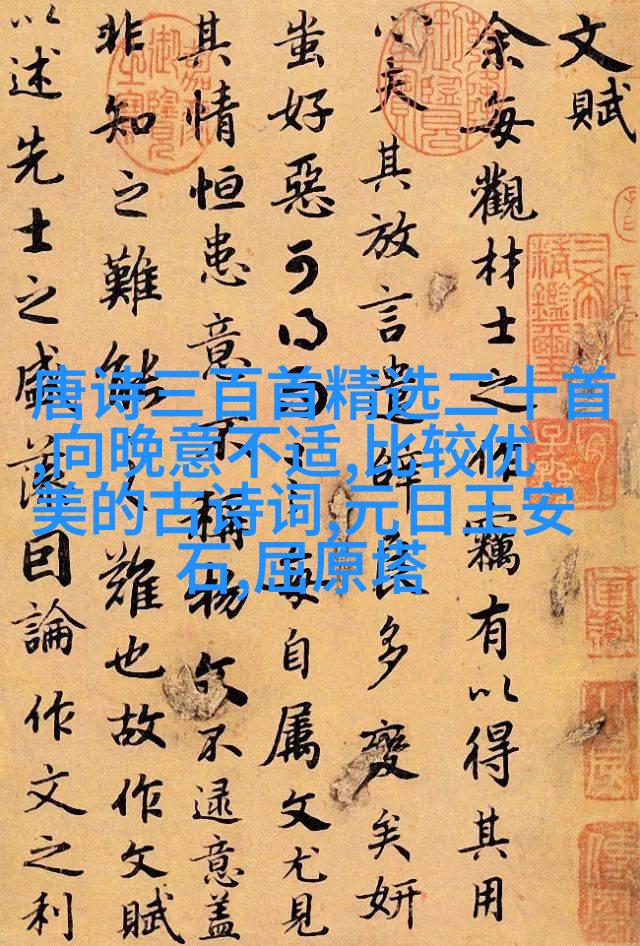 文賦
余每觀材士之作竊有以得其用
心矣其放言遣辭良多變矣妍
蚩好惡可得而言每自屬文尤見
其情恒患意不稱物文不逮意盖
非知之難能之難也故作文賦
以述先士之盛藻因論作文之利
唐诗三百首精选二十首
,向晚意不适,比较优
美的古诗词,元日王安
石,屈原塔